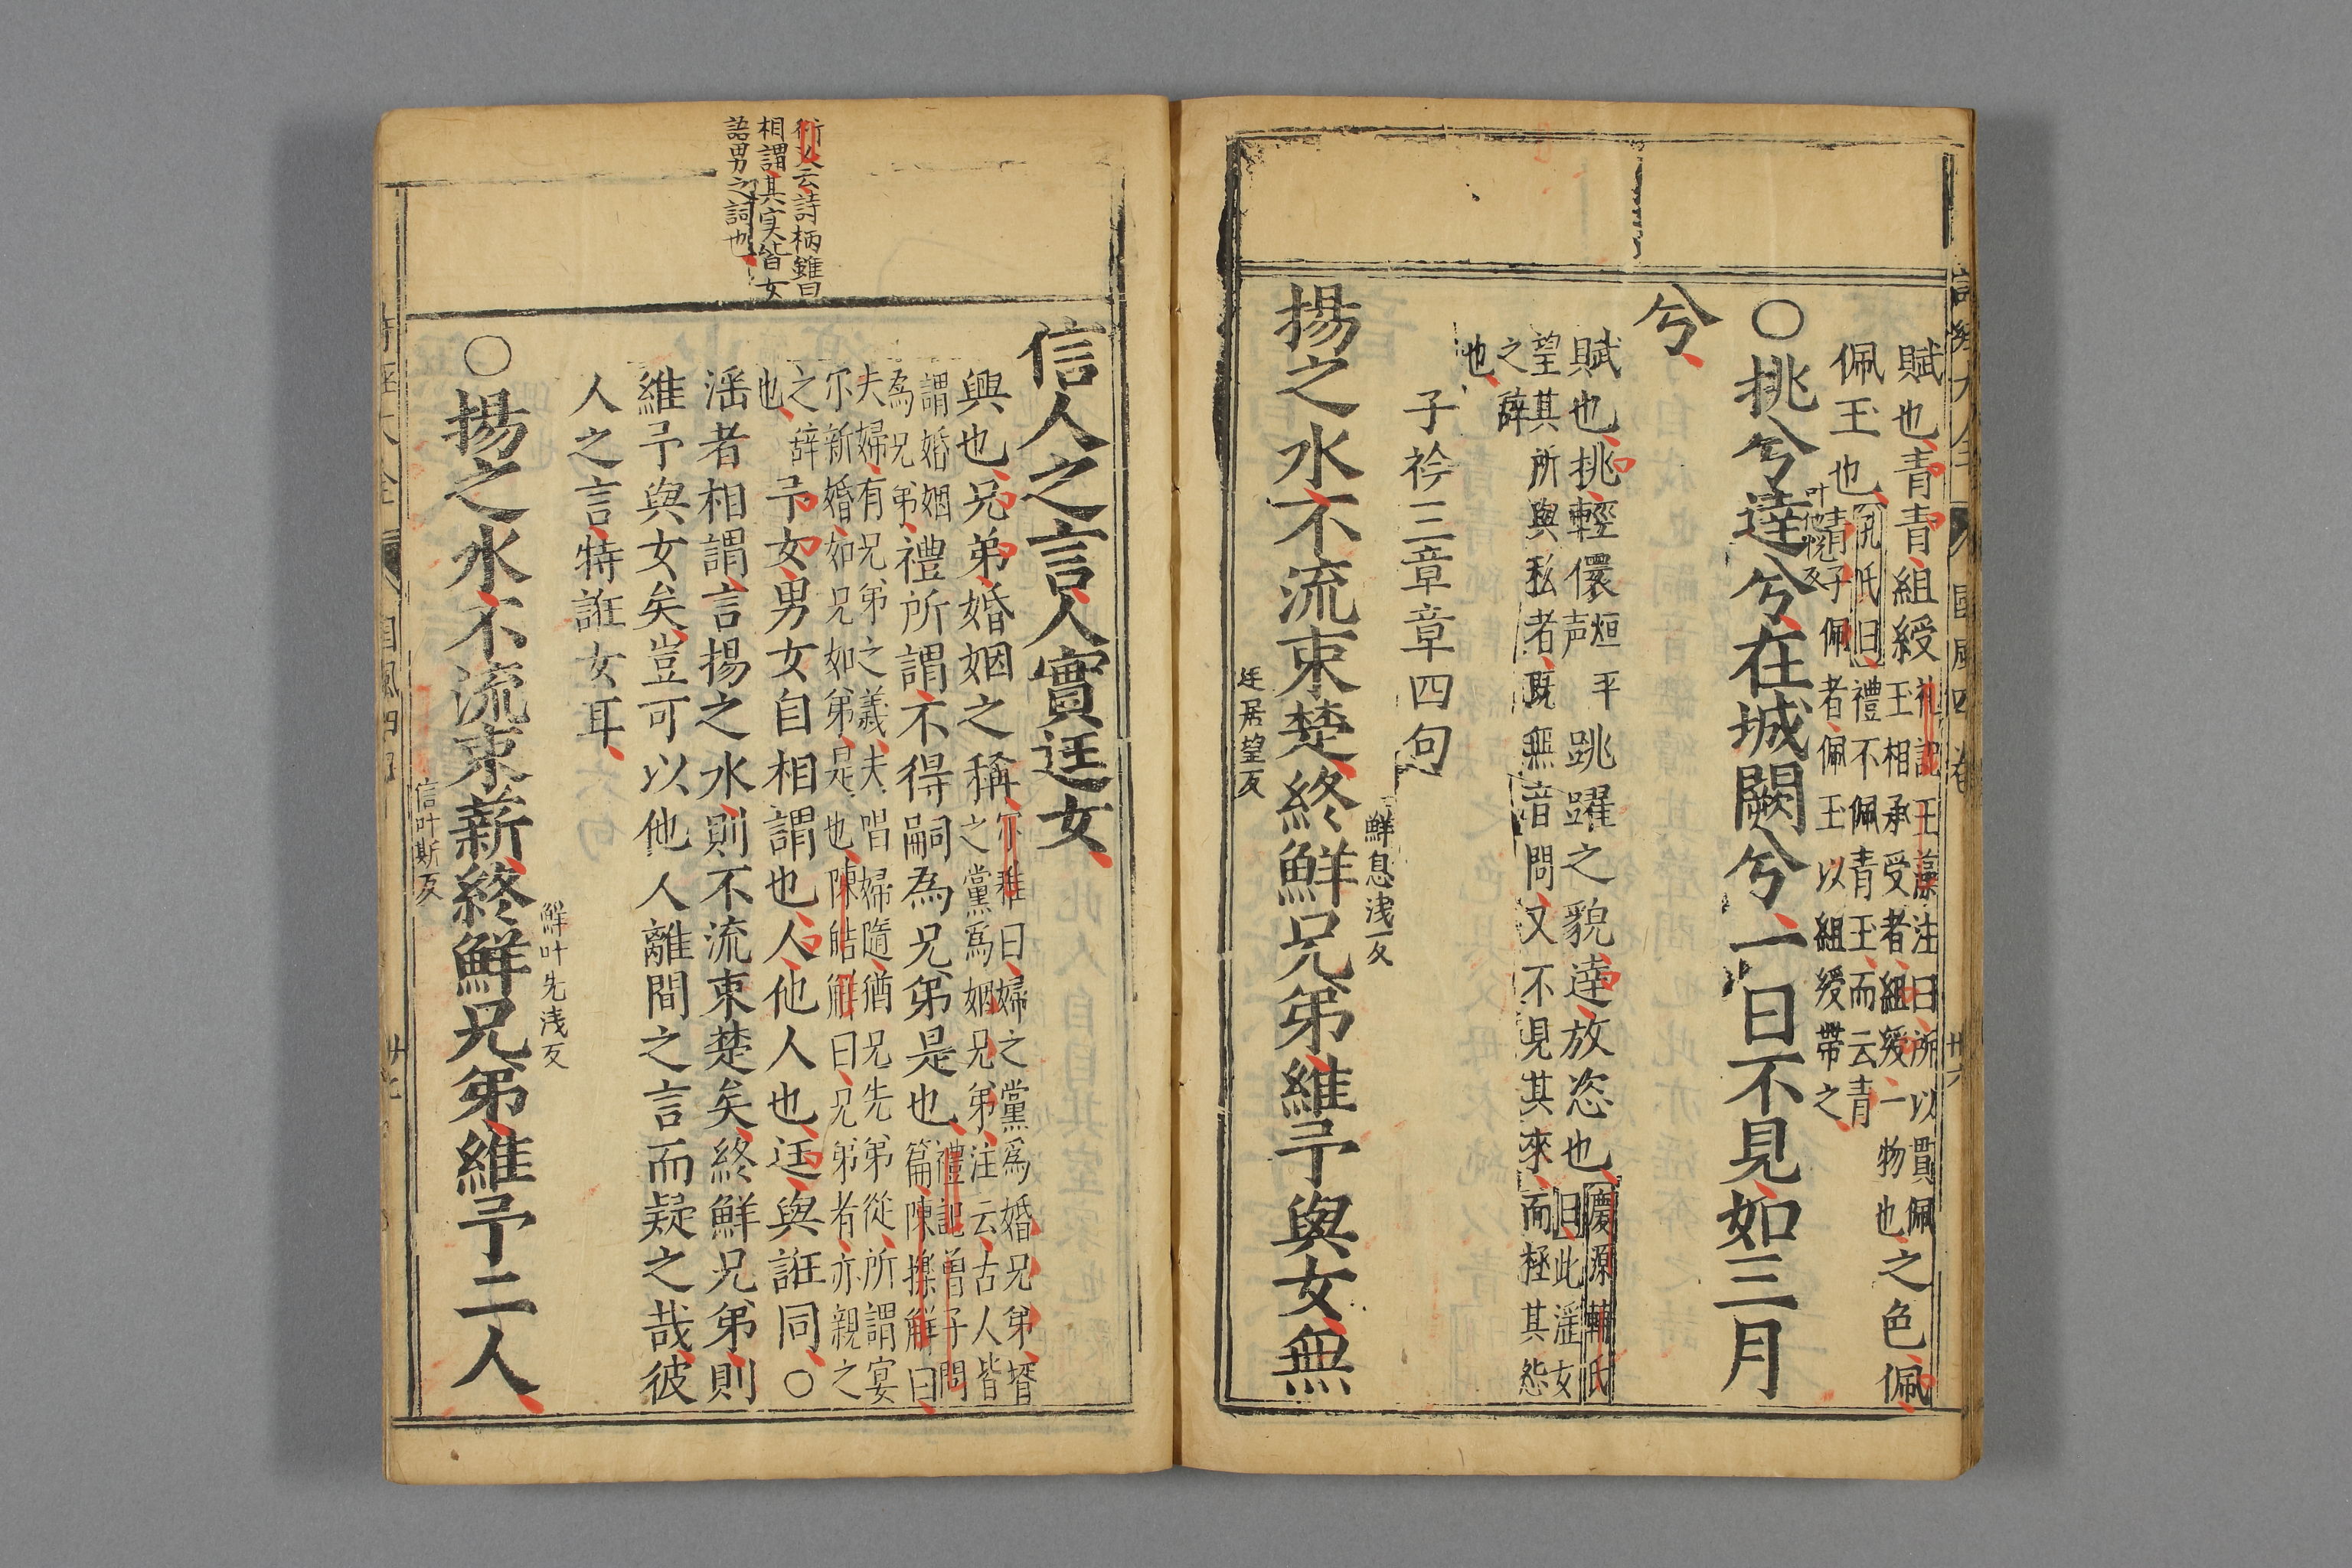 詩經大全 國風四卷 卅六
賦也青青組綬禮記玉藻注曰所以貫佩玉相承受者組綬一物也之色佩
佩玉也孔氏曰禮不佩青玉而云青青子佩者佩玉以組綬帶之
○挑兮達兮在城闕兮一日不見如三月
叶他悅反
兮
賦也挑輕儇烜平声跳躍之貌達放恣也慶源輔氏曰此淫女
望其所與私者既無音問又不見其來而極其怨
之辞
也
子衿三章章四句
鮮息浅反
揚之水不流束楚終鮮兄弟維予與女無
迋居望反
衍义云詩柄雖曰
相謂其实皆女
語男之詞也
信人之言人實迋女
興也兄弟婚姻之稱尔雅曰婦之黨爲婚兄弟壻之黨爲姻兄弟注云古人皆
謂婚姻爲兄弟禮所謂不得嗣為兄弟是也禮記曾子問篇陳櫟解曰
夫婦有兄弟之義夫唱婦隨猶兄先弟從所謂宴尔新婚如兄如弟是也陳皓解曰兄弟者亦親之
之辞也予女男女自相謂也人他人也迋與誑同○
淫者相謂言揚之水則不流束楚矣終鮮兄弟則
維予與女矣豈可以他人離間之言而疑之哉彼
人之言特誑女耳
鮮叶先浅反
○揚之水不流束薪終鮮兄弟維予二人
信叶斯反
國風四卷